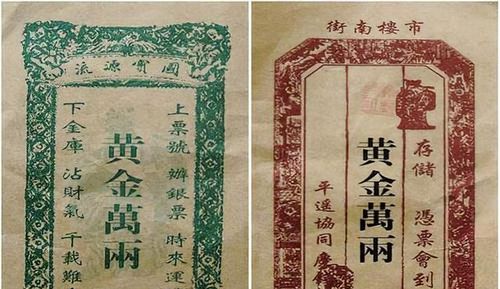 國寶源流
上票號 辦銀票 時來運
黃金萬兩
下金庫 沾財氣 千載難
市樓南街
存儲 憑票會到
黃金萬兩
平遥協同慶